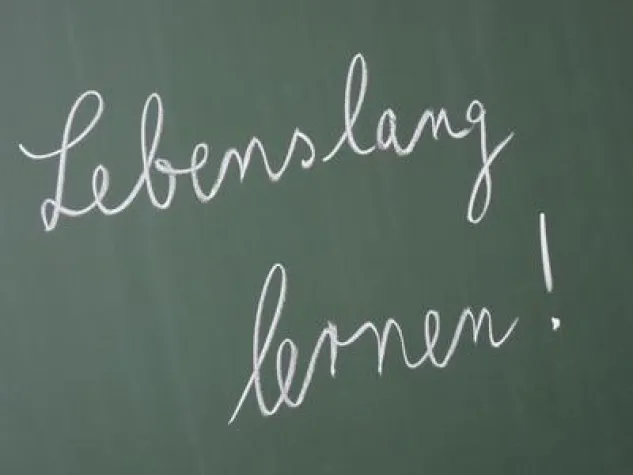 Lebenslang
lernen!